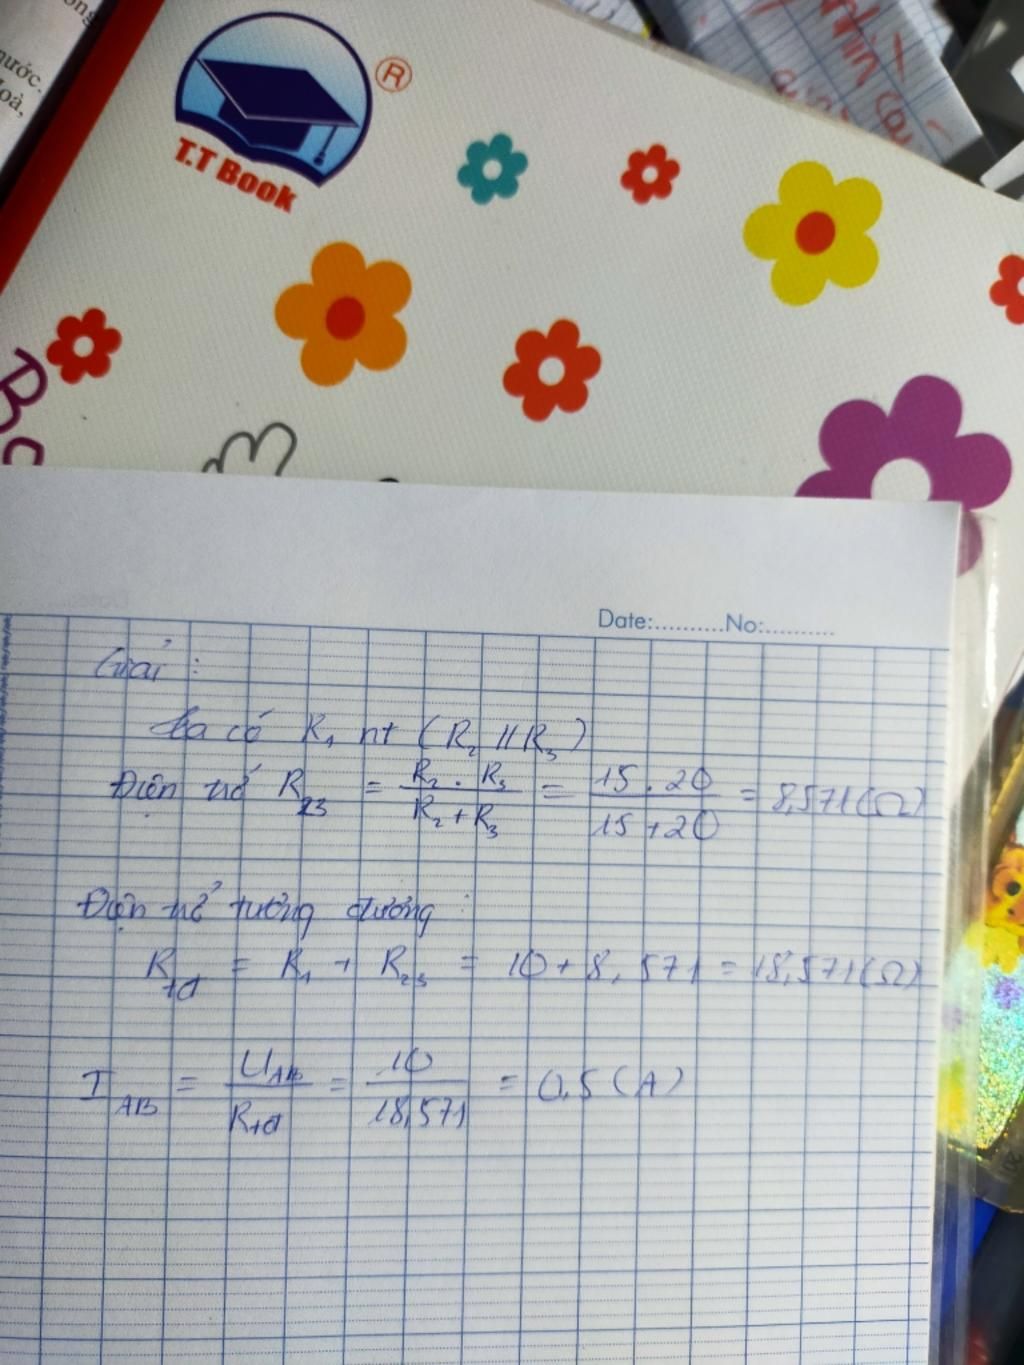 ước.
oà,
®
T.T Book
Date:..........No:..........
Giải :
Ta có R₁ nt (R₂ // R₃)
Điện trở R₂₃ = R₂ . R₃ / R₂ + R₃ = 15 . 20 / 15 + 20 = 8,571 (Ω)
Điện trở tương đương :
Rtđ = R₁ + R₂₃ = 10 + 8,571 = 18,571 (Ω)
I AB = U AB / Rtđ = 10 / 18,571 = 0,5 (A)